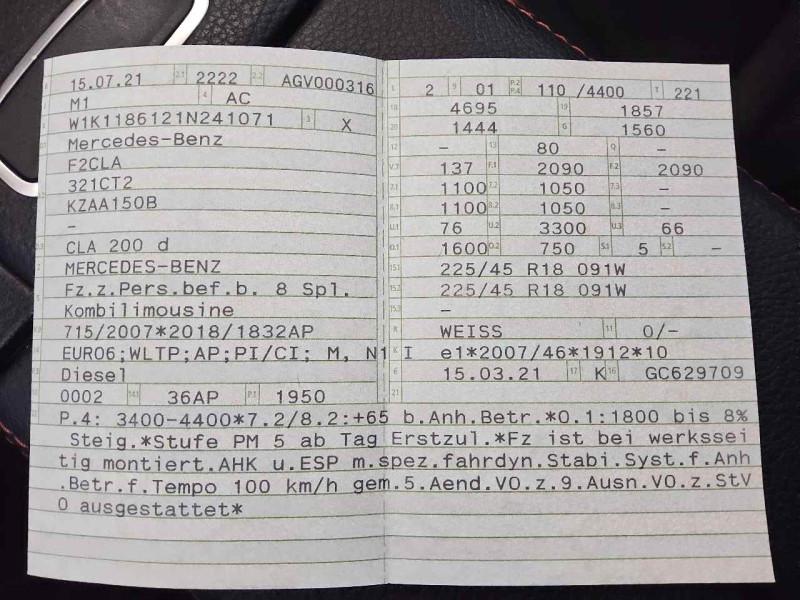 15.07.21 2.1 2222 2.2 AGV000316
M1 4 AC
W1K1186121N241071 3 X
Mercedes-Benz
F2CLA
321CT2
KZAA150B
-
CLA 200 d
MERCEDES-BENZ
Fz.z.Pers.bef.b. 8 Spl.
Kombilimousine
715/2007*2018/1832AP
EURO6;WLTP;AP;PI/CI; M, N1 I
Diesel
0002 14.1 36AP P.1 1950
L 2 9 01 P.2 P.4 110 /4400 T 221
18 4695 19 1857
20 1444 G 1560
12 - 13 80 Q -
V.7 137 F.1 2090 F.2 2090
7.1 1100 7.2 1050 7.3 -
8.1 1100 8.2 1050 8.3 -
U.1 76 U.2 3300 U.3 66
O.1 1600 O.2 750 S.1 5 S.2 -
15.1 225/45 R18 091W
15.2 225/45 R18 091W
15.3 -
R WEISS 11 0/-
K e1*2007/46*1912*10
6 15.03.21 17 K 16 GC629709
21
P.4: 3400-4400*7.2/8.2:+65 b.Anh.Betr.*O.1:1800 bis 8%
Steig.*Stufe PM 5 ab Tag Erstzul.*Fz ist bei werkssei
tig montiert.AHK u.ESP m.spez.fahrdyn.Stabi.Syst.f.Anh
.Betr.f.Tempo 100 km/h gem.5.Aend.VO.z.9.Ausn.VO.z.StV
O ausgestattet*